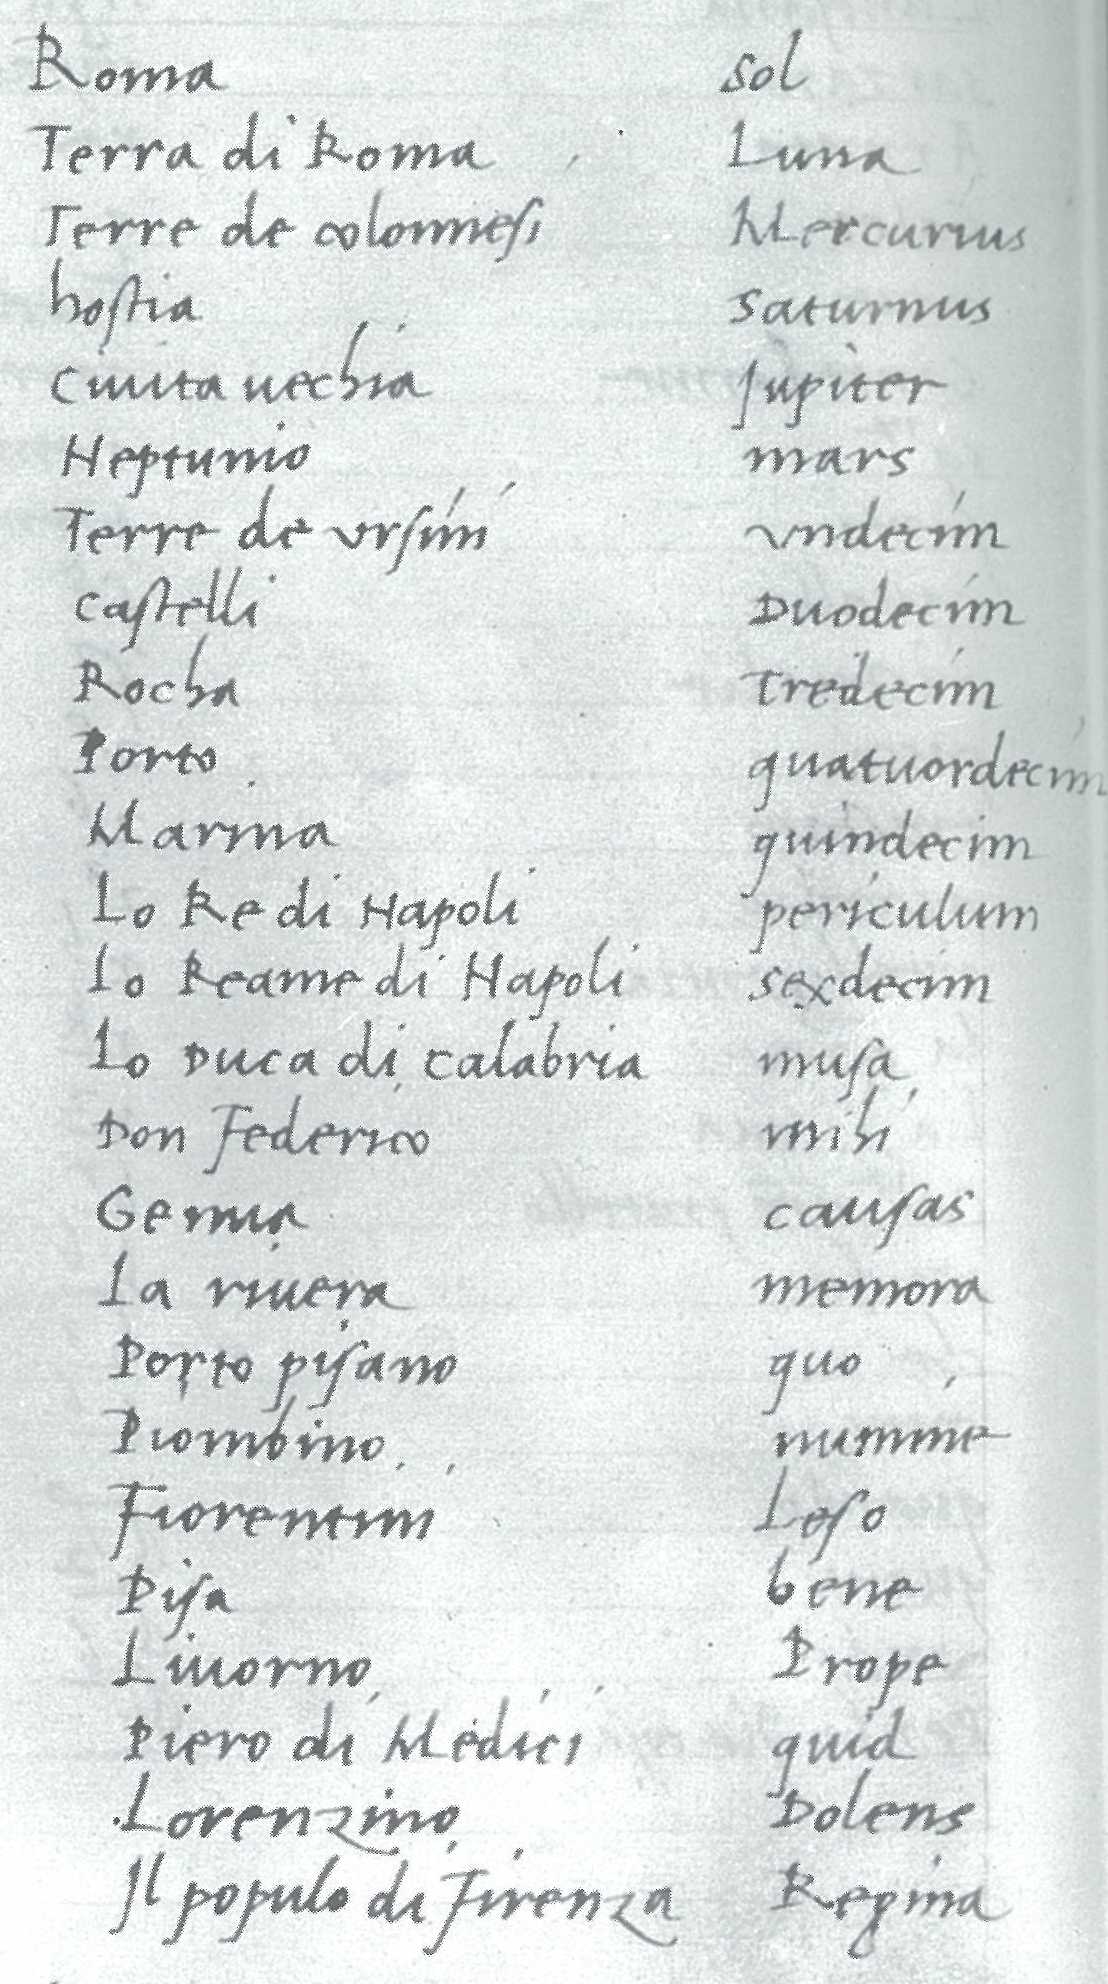 Roma sol
Terra di Roma Luna
Terre de colonnesi Mercurius
hostia saturnus
Ciuita uechia Jupiter
Neptunio mars
Terre de vrsini vndecim
castelli Duodecim
Rocha Tredecim
Porto quatuordecim
Marina quindecim
Lo Re di Napoli periculum
Lo Reame di Napoli sexdecim
Lo Duca di calabria musa
Don Federico mihi
Genua causas
La riuera memora
Porto pisano quo
Piombino numine
Fiorentini Leso
Pisa bene
Liuorno Prope
Piero di Medici quid
Lorenzino Dolens
Il populo di Firenza Regina